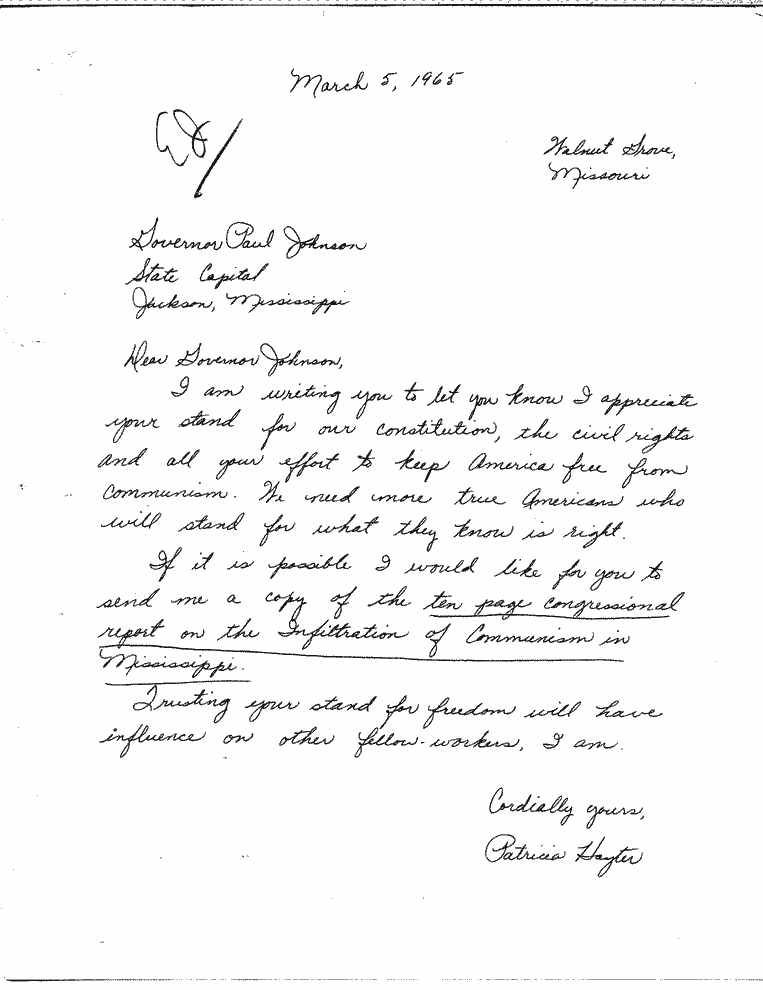 March 5, 1965
Walnut Grove,
Missouri
Governor Paul Johnson
State Capital
Jackson, Mississippi
Dear Governor Johnson,
I am writing you to let you know I appreciate
your stand for our constitution, the civil rights
and all your effort to keep America free from
Communism. We need more true Americans who
will stand for what they know is right.
If it is possible I would like for you to
send me a copy of the ten page congressional
report on the Infiltration of Communism in
Mississippi.
Trusting your stand for freedom will have
influence on other fellow-workers, I am.
Cordially yours,
Patricia Hayter